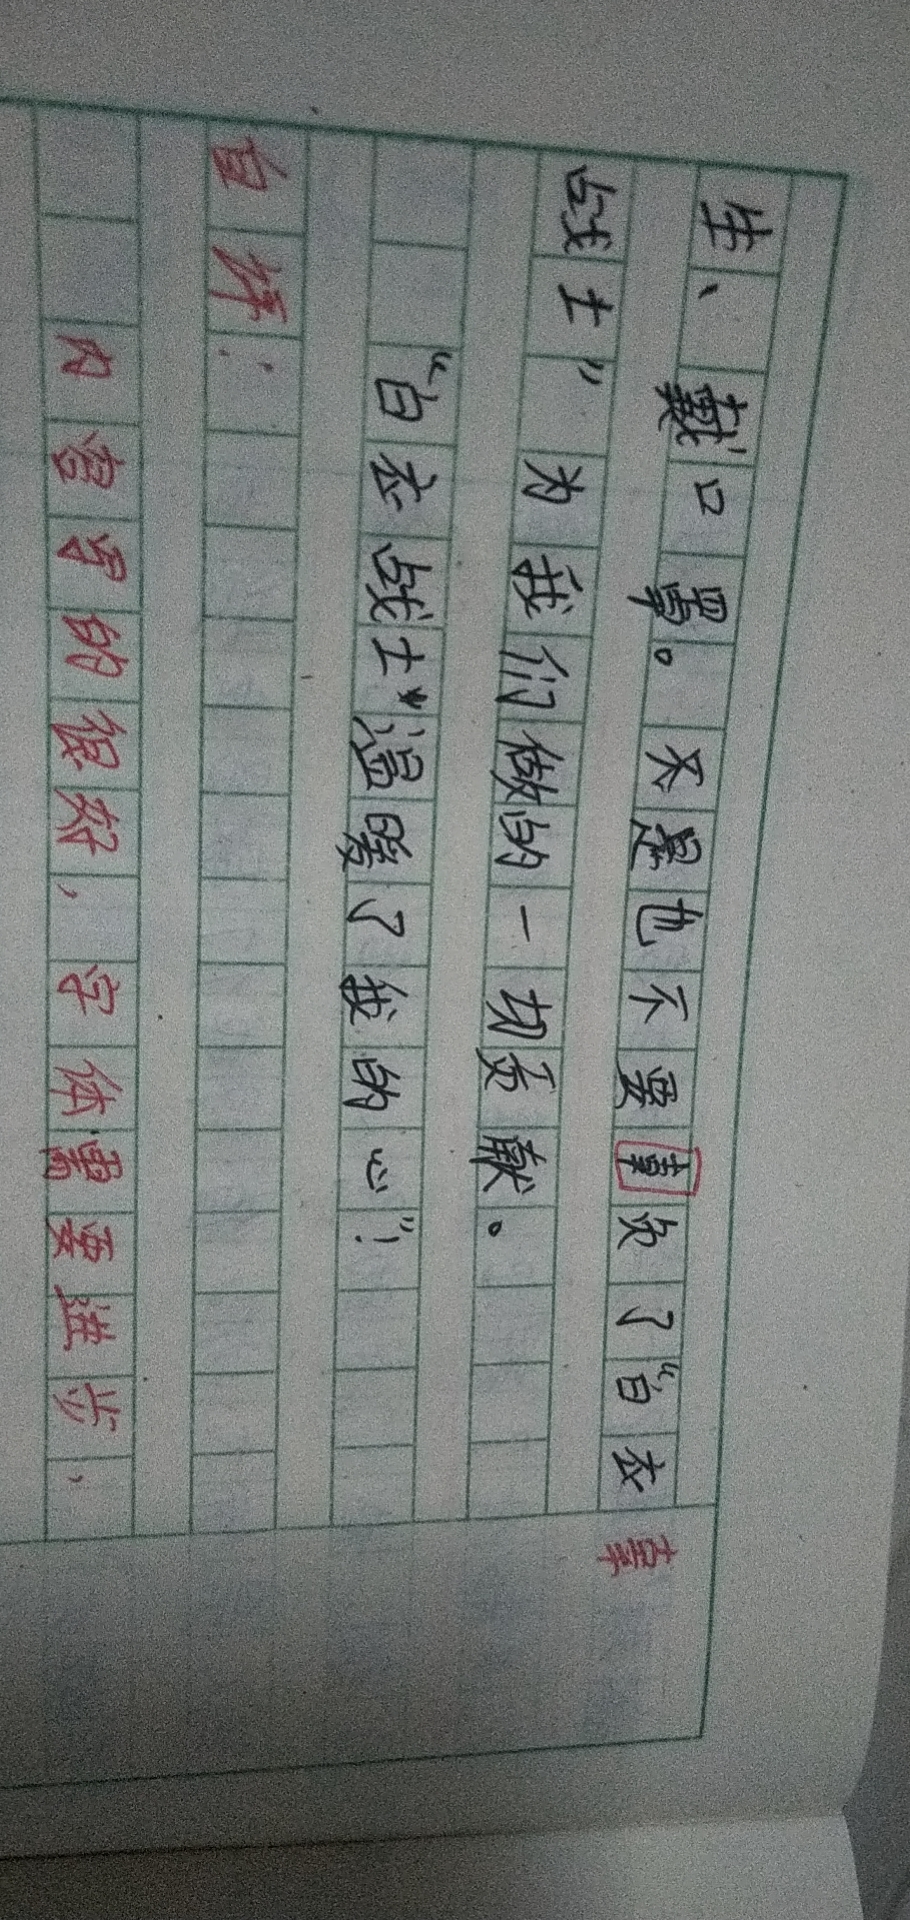 生、戴口罩。不是也不要辜负了“白衣
辜
战士”为我们做的一切贡献。
“白衣战士”温暖了我的心”!
自评:
内容写的很好，字体需要进步、